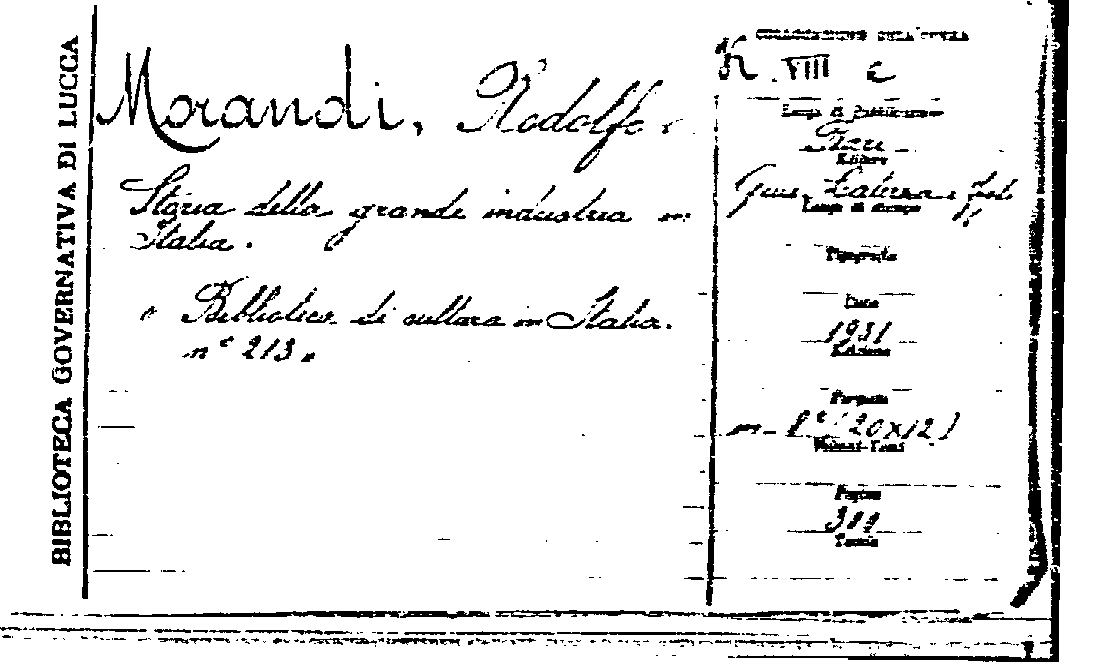 BIBLIOTECA GOVERNATIVA DI LUCCA
Morandi, Rodolfo.
Storia della grande industria in
Italia.
Biblioteca di cultura in Italia.
n° 213.
COLLOCAZIONE DELL'OPERA
K. VIII c
Luogo di Pubblicazione
Bari
Editore
Gius. Laterza e figli
Luogo di stampa
Tipografia
Data
1931
Edizione
Formato
in 8° (20x12)
Volumi-Tomi
Pagine
311
Tavole